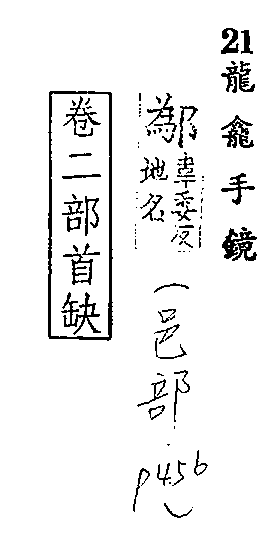 21龍龕手鏡
鄬韋委反地名(邑部 p456)
卷二部首缺